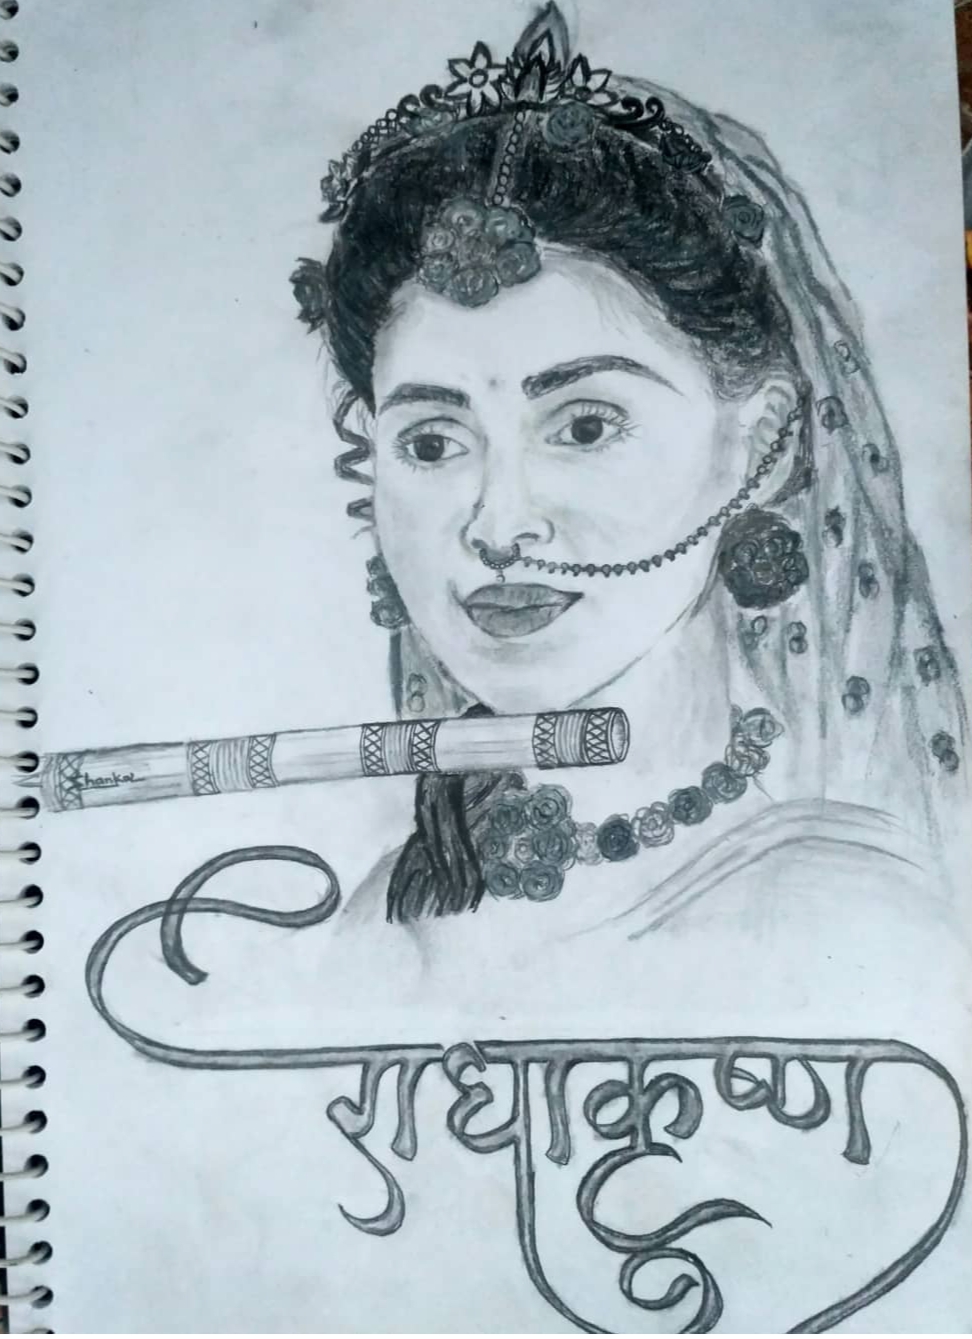 Shankar
राधाकृष्ण